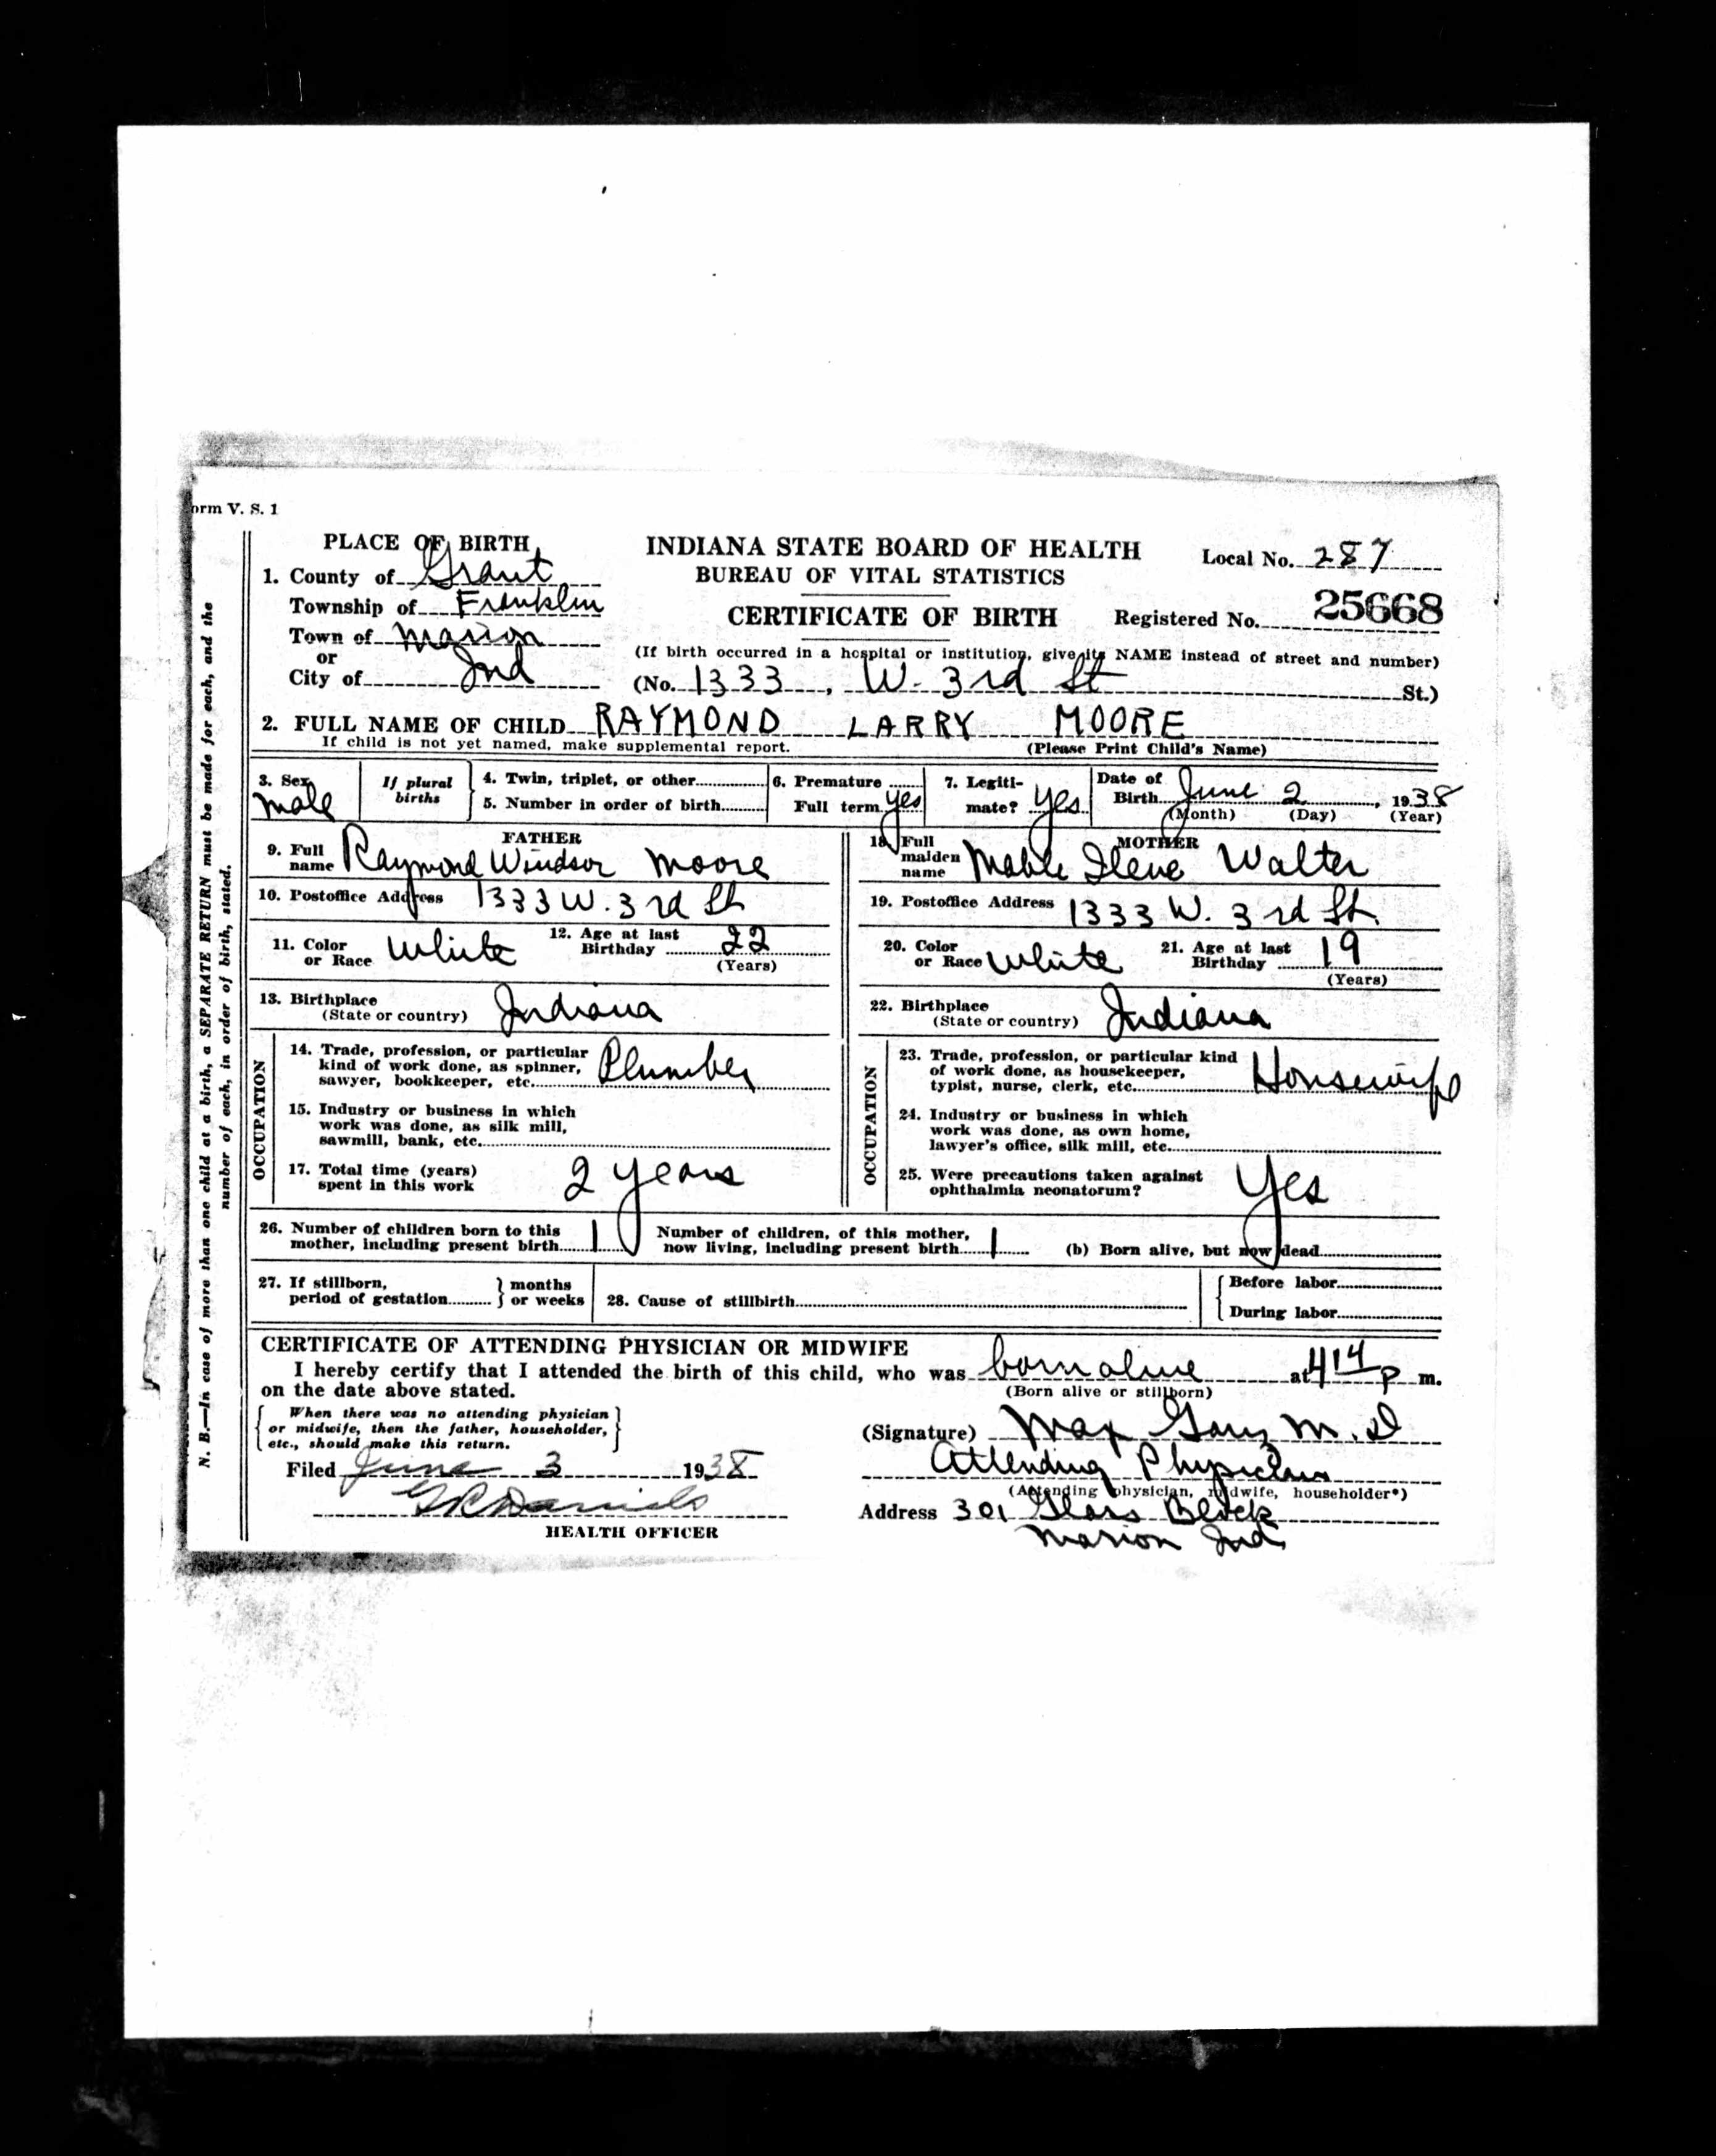 orm V. S. 1
PLACE OF BIRTH
INDIANA STATE BOARD OF HEALTH
BUREAU OF VITAL STATISTICS
CERTIFICATE OF BIRTH
Local No. 287
Registered No. 25668
1. County of Grant
Township of Franklin
Town of Marion
or
City of Ind
(If birth occurred in a hospital or institution, give its NAME instead of street and number)
(No. 1333, W. 3rd St St.)
2. FULL NAME OF CHILD RAYMOND LARRY MOORE
If child is not yet named, make supplemental report. (Please Print Child's Name)
3. Sex male
If plural births
4. Twin, triplet, or other
5. Number in order of birth
6. Premature
Full term yes
7. Legitimate? yes
Date of Birth June 2, 1938
(Month) (Day) (Year)
FATHER
9. Full name Raymond Windsor Moore
10. Postoffice Address 1333 W. 3rd St
11. Color or Race White
12. Age at last Birthday 22
(Years)
13. Birthplace
(State or country) Indiana
OCCUPATION
14. Trade, profession, or particular
kind of work done, as spinner,
sawyer, bookkeeper, etc. Plumber
15. Industry or business in which
work was done, as silk mill,
sawmill, bank, etc.
17. Total time (years)
spent in this work 2 years
MOTHER
18. Full maiden name Mable Ilene Walter
19. Postoffice Address 1333 W. 3rd St.
20. Color or Race White
21. Age at last Birthday 19
(Years)
22. Birthplace
(State or country) Indiana
OCCUPATION
23. Trade, profession, or particular kind
of work done, as housekeeper,
typist, nurse, clerk, etc. Housewife
24. Industry or business in which
work was done, as own home,
lawyer's office, silk mill, etc.
25. Were precautions taken against
ophthalmia neonatorum? Yes
26. Number of children born to this
mother, including present birth 1
Number of children, of this mother,
now living, including present birth 1
(b) Born alive, but now dead
27. If stillborn,
period of gestation } months
or weeks
28. Cause of stillbirth
Before labor
During labor
CERTIFICATE OF ATTENDING PHYSICIAN OR MIDWIFE
I hereby certify that I attended the birth of this child, who was born alive at 4 14 p m.
on the date above stated. (Born alive or stillborn)
When there was no attending physician
or midwife, then the father, householder,
etc., should make this return.
(Signature) Max M. D
Attending Physician
(Attending physician, midwife, householder*)
Filed June 3 1938
Daniels
HEALTH OFFICER
Address 301 Glass Block
Marion Ind.
N. B.—In case of more than one child at a birth, a SEPARATE RETURN must be made for each, and the
number of each, in order of birth, stated.